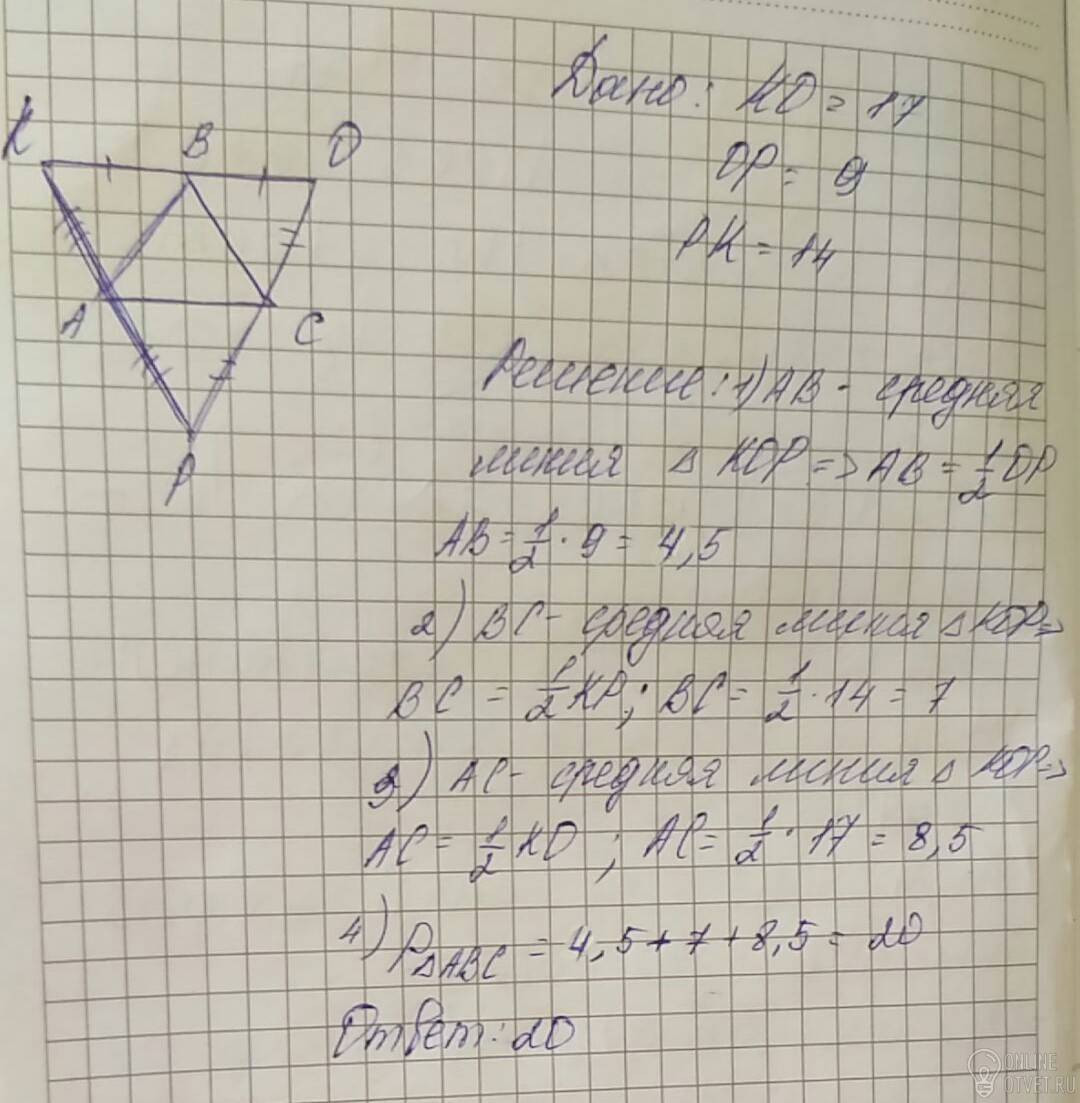 Дано: KO = 17
OP = 9
PK = 14
K B O
A C
P
Решение: 1) AB - средняя
линия △ KOP => AB = 1/2 OP
AB = 1/2 · 9 = 4,5
2) BC - средняя линия △ KOP =>
BC = 1/2 KP; BC = 1/2 · 14 = 7
3) AC - средняя линия △ KOP =>
AC = 1/2 KO ; AC = 1/2 · 17 = 8,5
4) P△ABC = 4,5 + 7 + 8,5 = 20
Ответ: 20
ONLINE
OTVET.RU